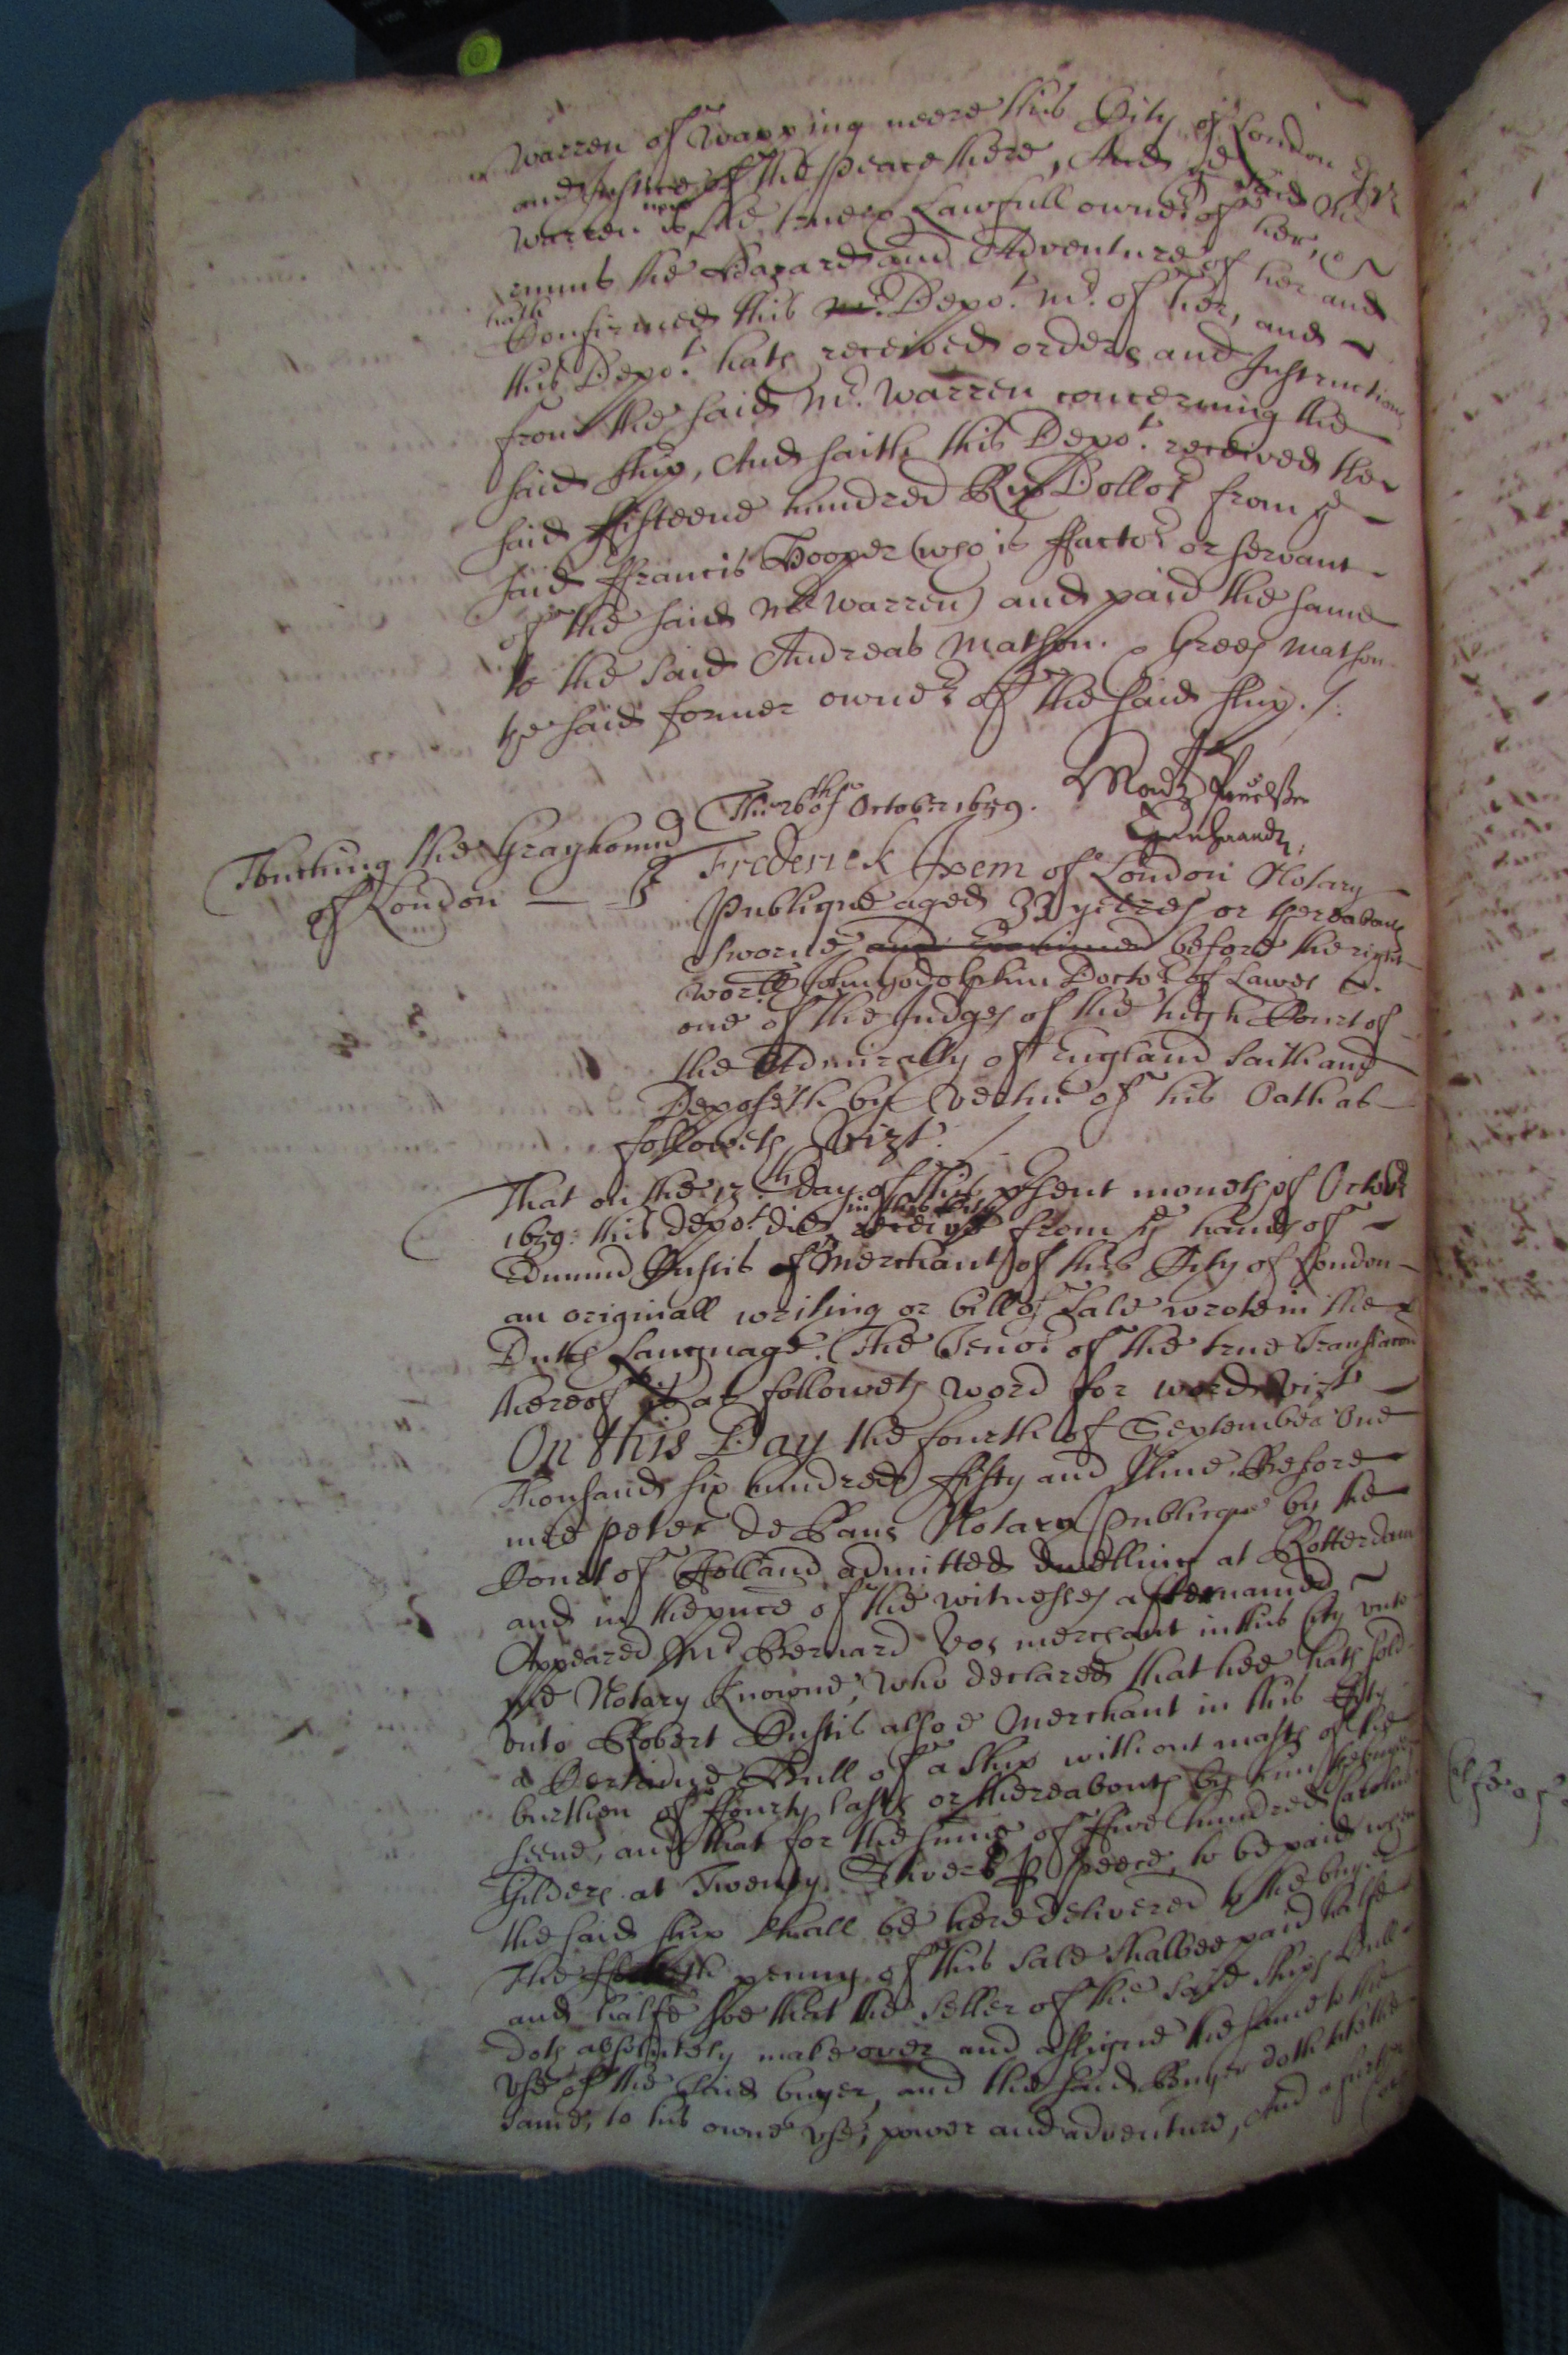 Warren of Wapping neere this City of London Esqr
and Justice of the peace there, And ye said Mr
Warren is now the true & Lawfull owner of her, &
runns the Hazard and Adventure of her and
hath Confirmed this Mr. Depot. Mr. of her, and
this Depot. hath received orders and Instructions
from the said Mr. Warren concerning the
said ship, And saith this Depot. received the
said ffifteene hundred Rix Dollors from ye
said ffrancis Hooper (who is ffactor or servant
of the said Mr Warren) and paid the same
to the said Andreas Matson. & Greeg Matson
the said former owners of the said ship./.
The 26th of October 1659.
Touching the Grayhound
of London
Frederick Ixem of London Notary
Publique aged 33 yeeres or thereabouts
sworne and Examined before the right
worll John Godolphin Doctor of Lawes
one of the Judges of the high Court of
the Admiralty of England saith and
Deposeth by vertue of his Oath as
followeth, Vizt. /
That on the 13th day of this present moneth of October
1659: this depot. did in this City receive from ye hands of
Edmund Custis of Merchant of this City of London
an originall writing or bill of Sale wrote in the
Dutch Language. (The Tenor of the true Translacon
thereof is as followeth word for word vizt
On this Day the fourth of September One
Thousand six hundred ffifty and Nine. Before
mee Peter de Paus Notary Publique by the
Court of Holland admitted dwelling at Rotterdam
and in the prnce of the witnesses afternamed
Appeared Mr Bernard Vos merchant in this City unto
me Notary Knowne, who declared that hee hath sold
unto Robert Custis alsoe Merchant in this City
a Certaine Hull of a Ship without masts of the
burthen of ffourty lasts or thereabouts by him the buyer
seene, and that for the summe of ffive hundred Carolus
Gilders at Twenty Stivers p peece, to be paid when
the said ship shall be here delivered to the buyer
The penny of this sale shall bee paid halfe
and halfe soe that the Seller of the said ships Hull
doth absolutely make over and assigne the same to the
use of the said buyer, and the said Buyer doth take the
same, to his owne use, power and adventure, And